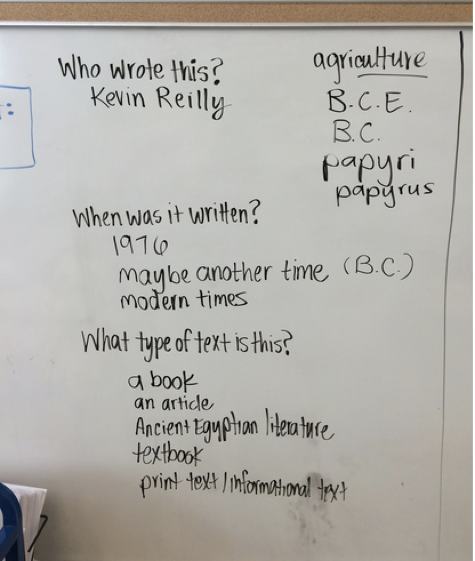 Who wrote this?
Kevin Reilly
agriculture
B.C.E.
B.C.
papyri
papyrus
When was it written?
1976
maybe another time (B.C.)
modern times
What type of text is this?
a book
an article
Ancient Egyptian literature
textbook
print text / informational text
: